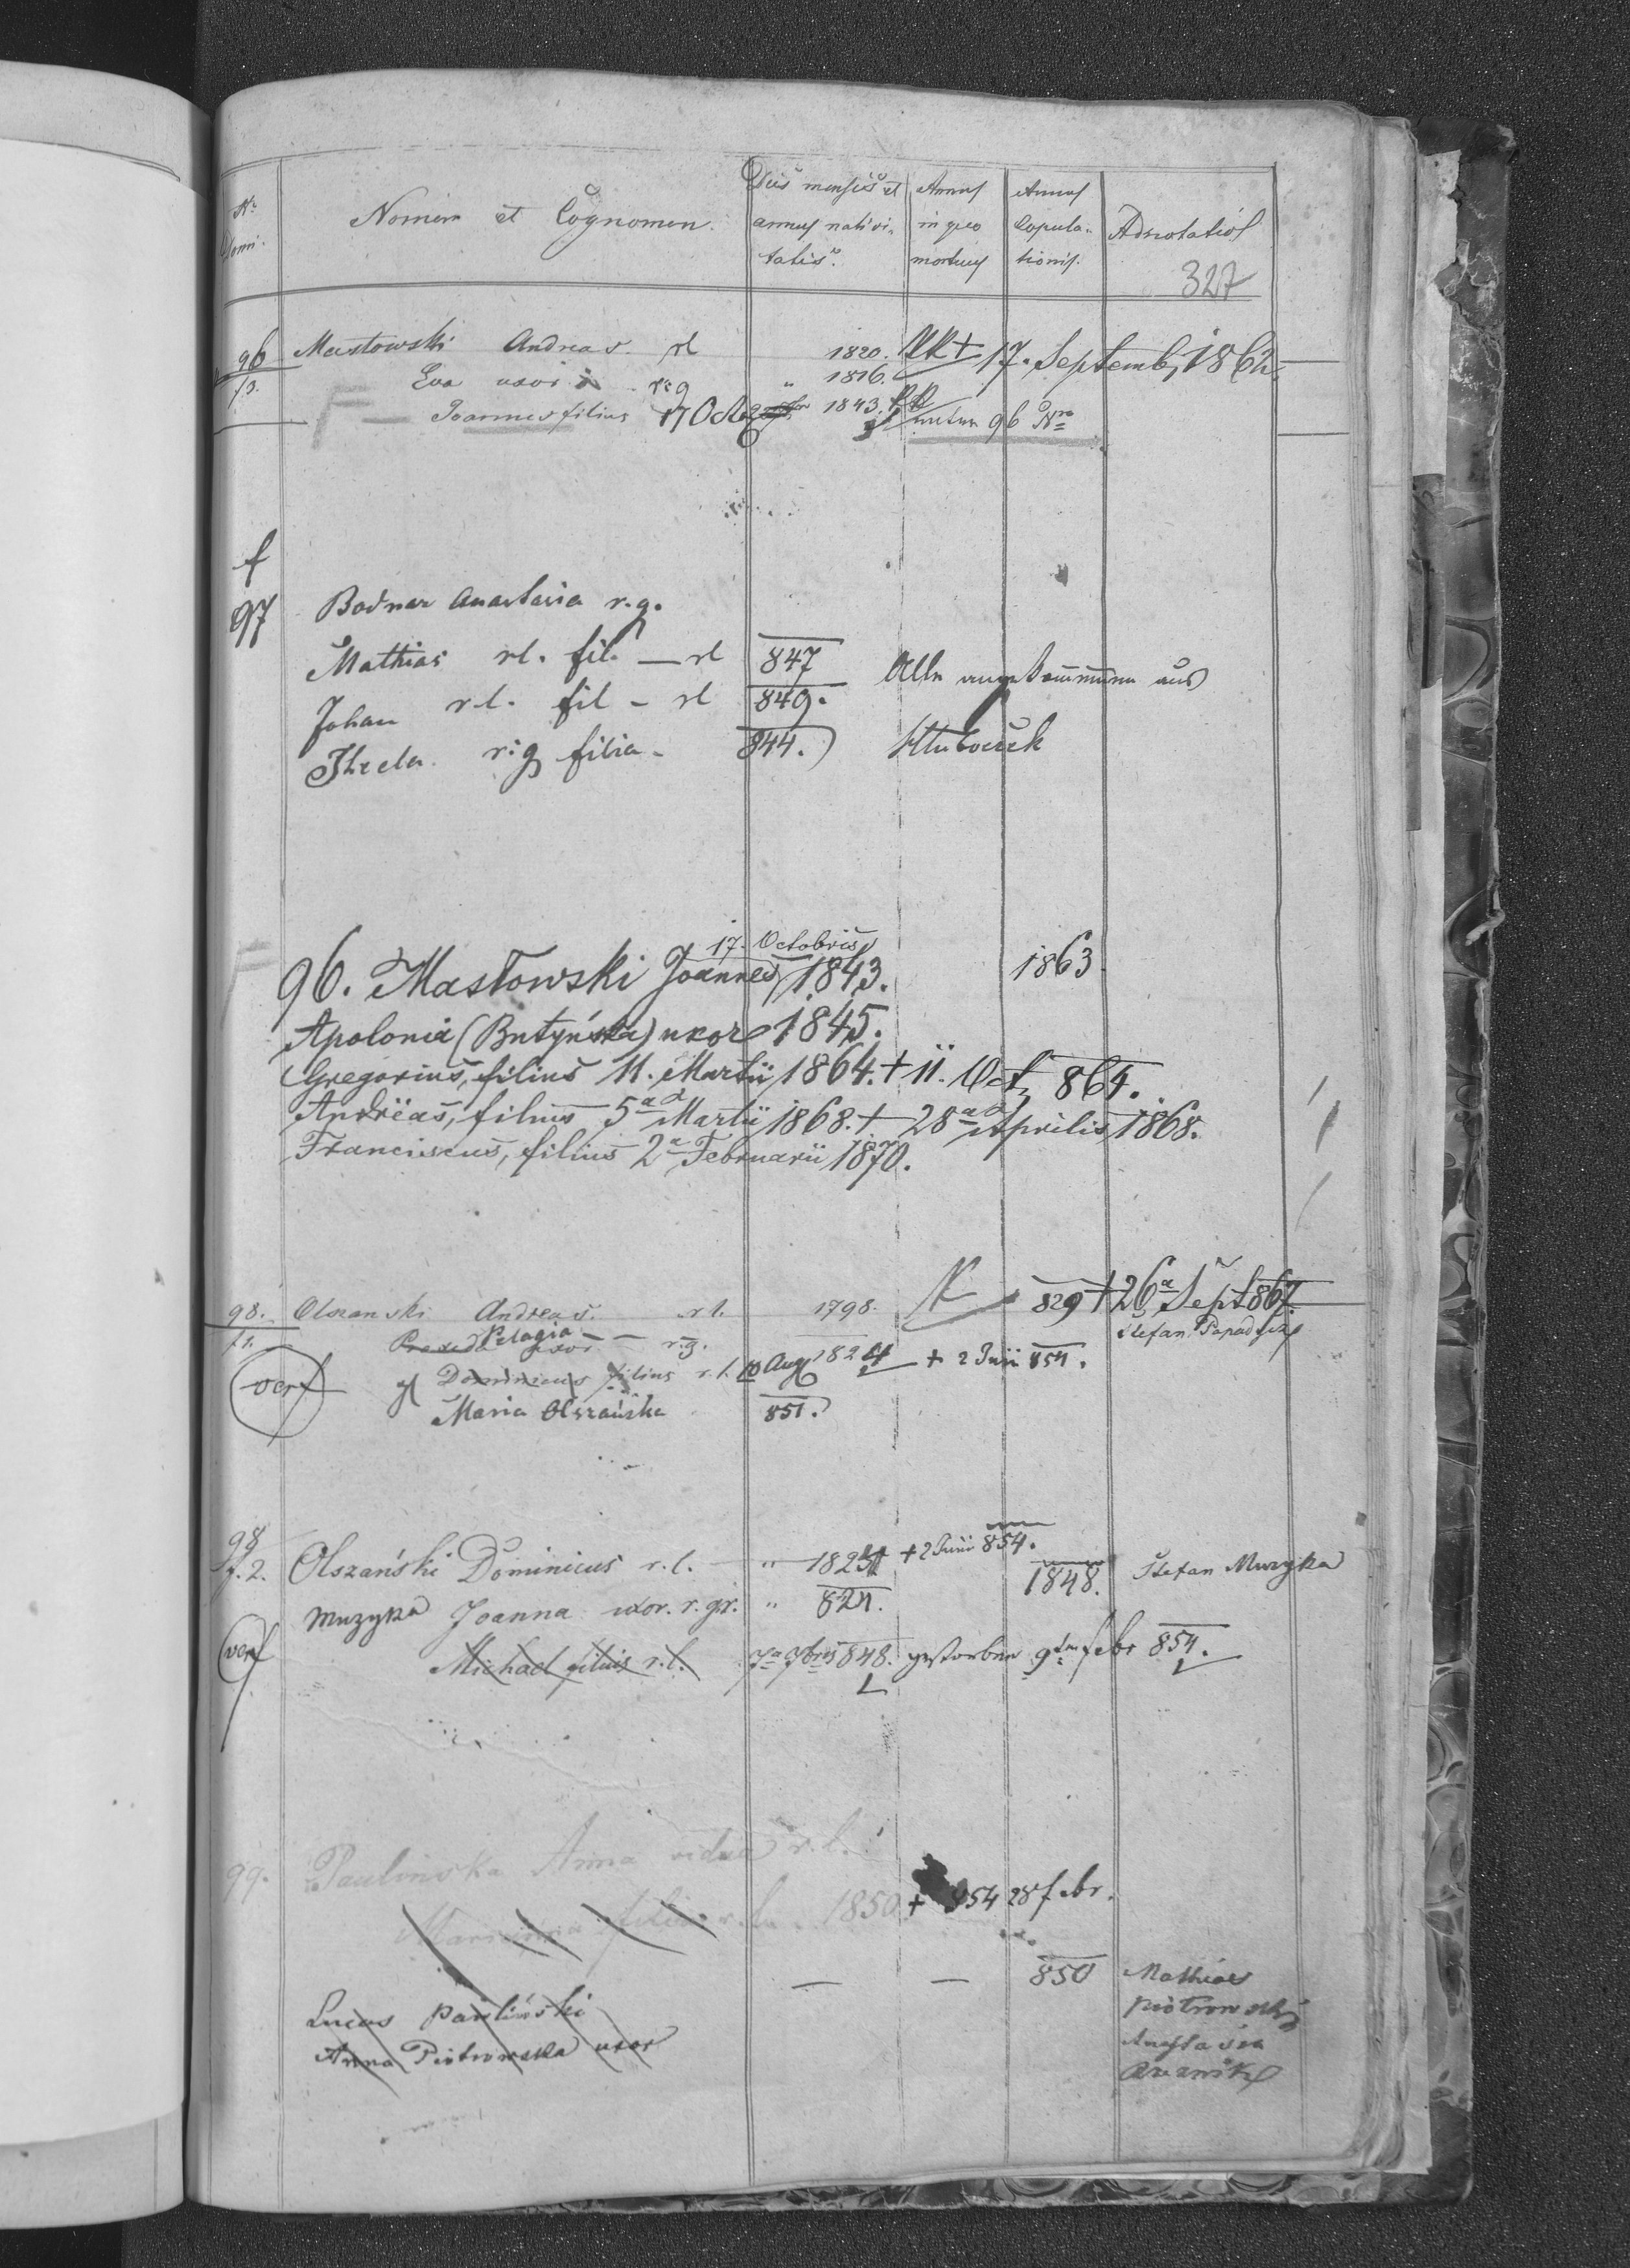 Nrus Domi. Nomen et Cognomen. Dies mensis et annus nativitatis. Annus in quo mortuus Annus Copulationis. Adnotatio
327
96 Masłowski Andreas. rl 1820. + 17. Septemb, 1862
f3. Eva uxor r:g „ 1816.
Joannes filius 17 Octo 1843. 96 Nro
f
97 Bodnar Anastasia r.g.
Mathias rl. fil. — rl 847 Alle angekommen aus
Johan r.l. fil - rl 849.
Thecla r:g filia - 844. Hluboczek
17. Octobris
96. Masłowski Joannes 1843. 1863
Apolonia (Butyńska) uxor 1845.
Gregorius, filius 11. Martii 1864. + 11. Oct. 864.
Andreas, filius 5ta Martii 1868. + 28a Aprilis 1868.
Franciscus, filius 2a Februarii 1870.
98. Olszanski Andreas. rl. 1798. 829 + 26a Sept 867.
f.1. Pelagia uxor — r.g. Stefan
verf Dominicus filius r.l. 10 Aug 1824 + 2 Junii 854.
Maria Olszańska 851.
98
f.2. Olszański Dominicus r.l. — „ 1824 + 2 Junii 854. 1848. Stefan Muzyka
Muzyka Joanna uxor. r. gr. „ 824.
verf Michael filius r.l. 7a 7bris 848. gestorben 9ten febr 854.
99. Paulinska Anna vidua r.l.
Marianna filia r.l. 1850 + 854 28 febr.
— — 850 Mathias
Lucas Pawliński Piotrowski
Anna Piotrowska uxor Anastasia